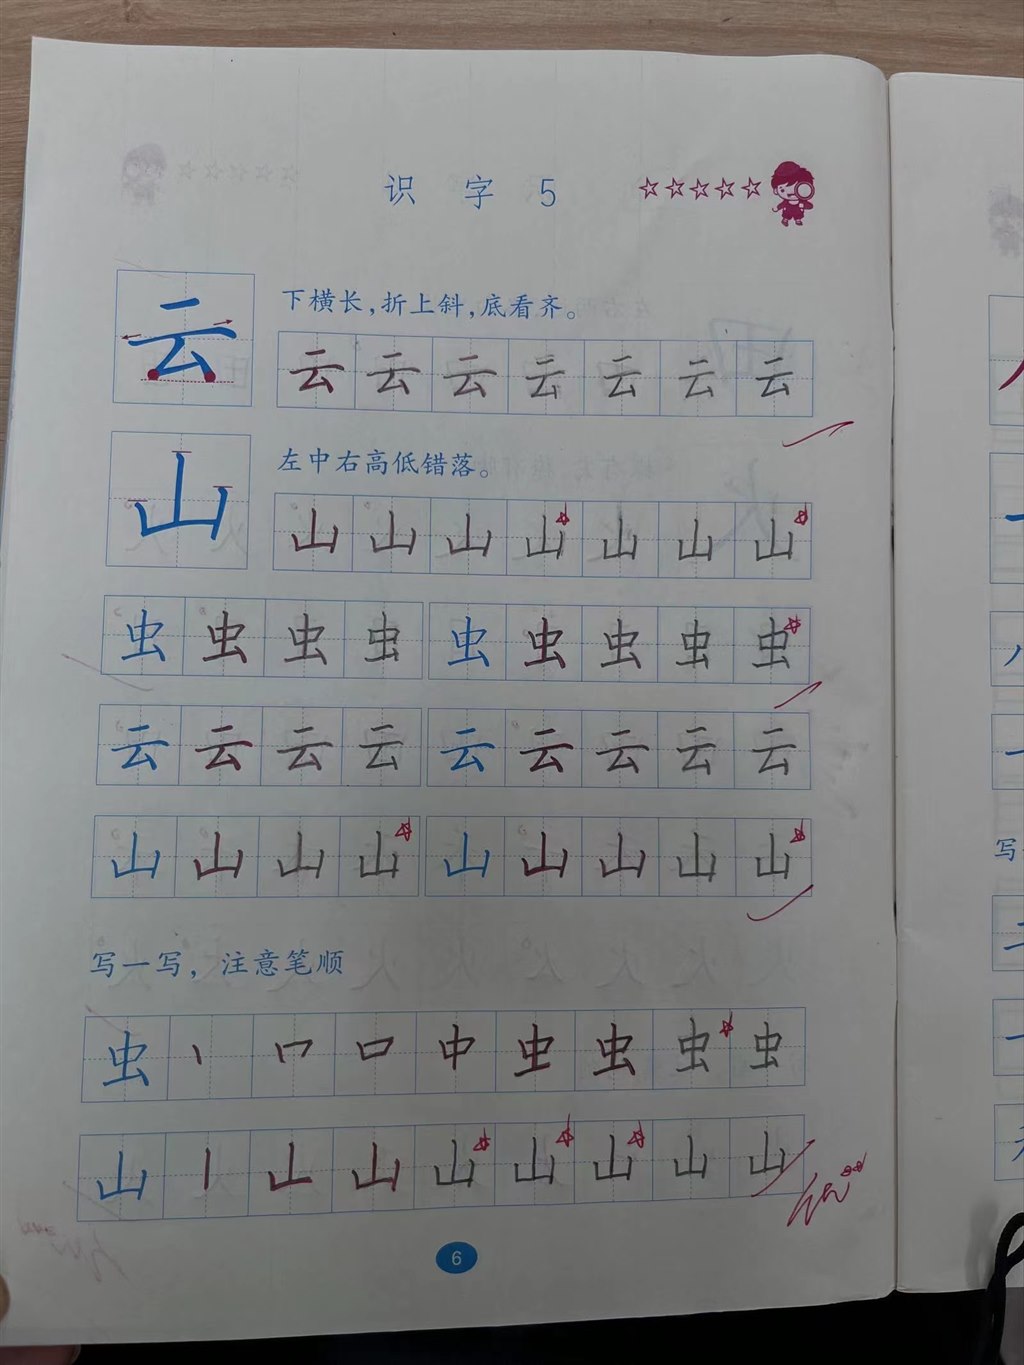 识字5
下横长,折上斜,底看齐。
云 云云云云云云云
左中右高低错落。
山 山山山山山山山
虫虫虫虫 虫虫虫虫虫
云云云云 云云云云云
山山山山 山山山山山
写一写，注意笔顺
虫丶口中虫虫虫虫
山丨山山山山山山
6
写